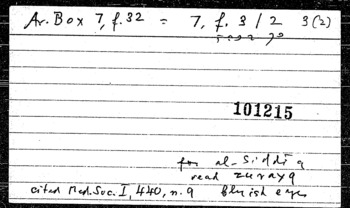 Ar. Box 7, f. 32 = 7, f. 3 / 2 3 (2)
101215
for al-Siddiq
read zurayq
cited Med. Soc. I, 440, n. 9 bluish eyes